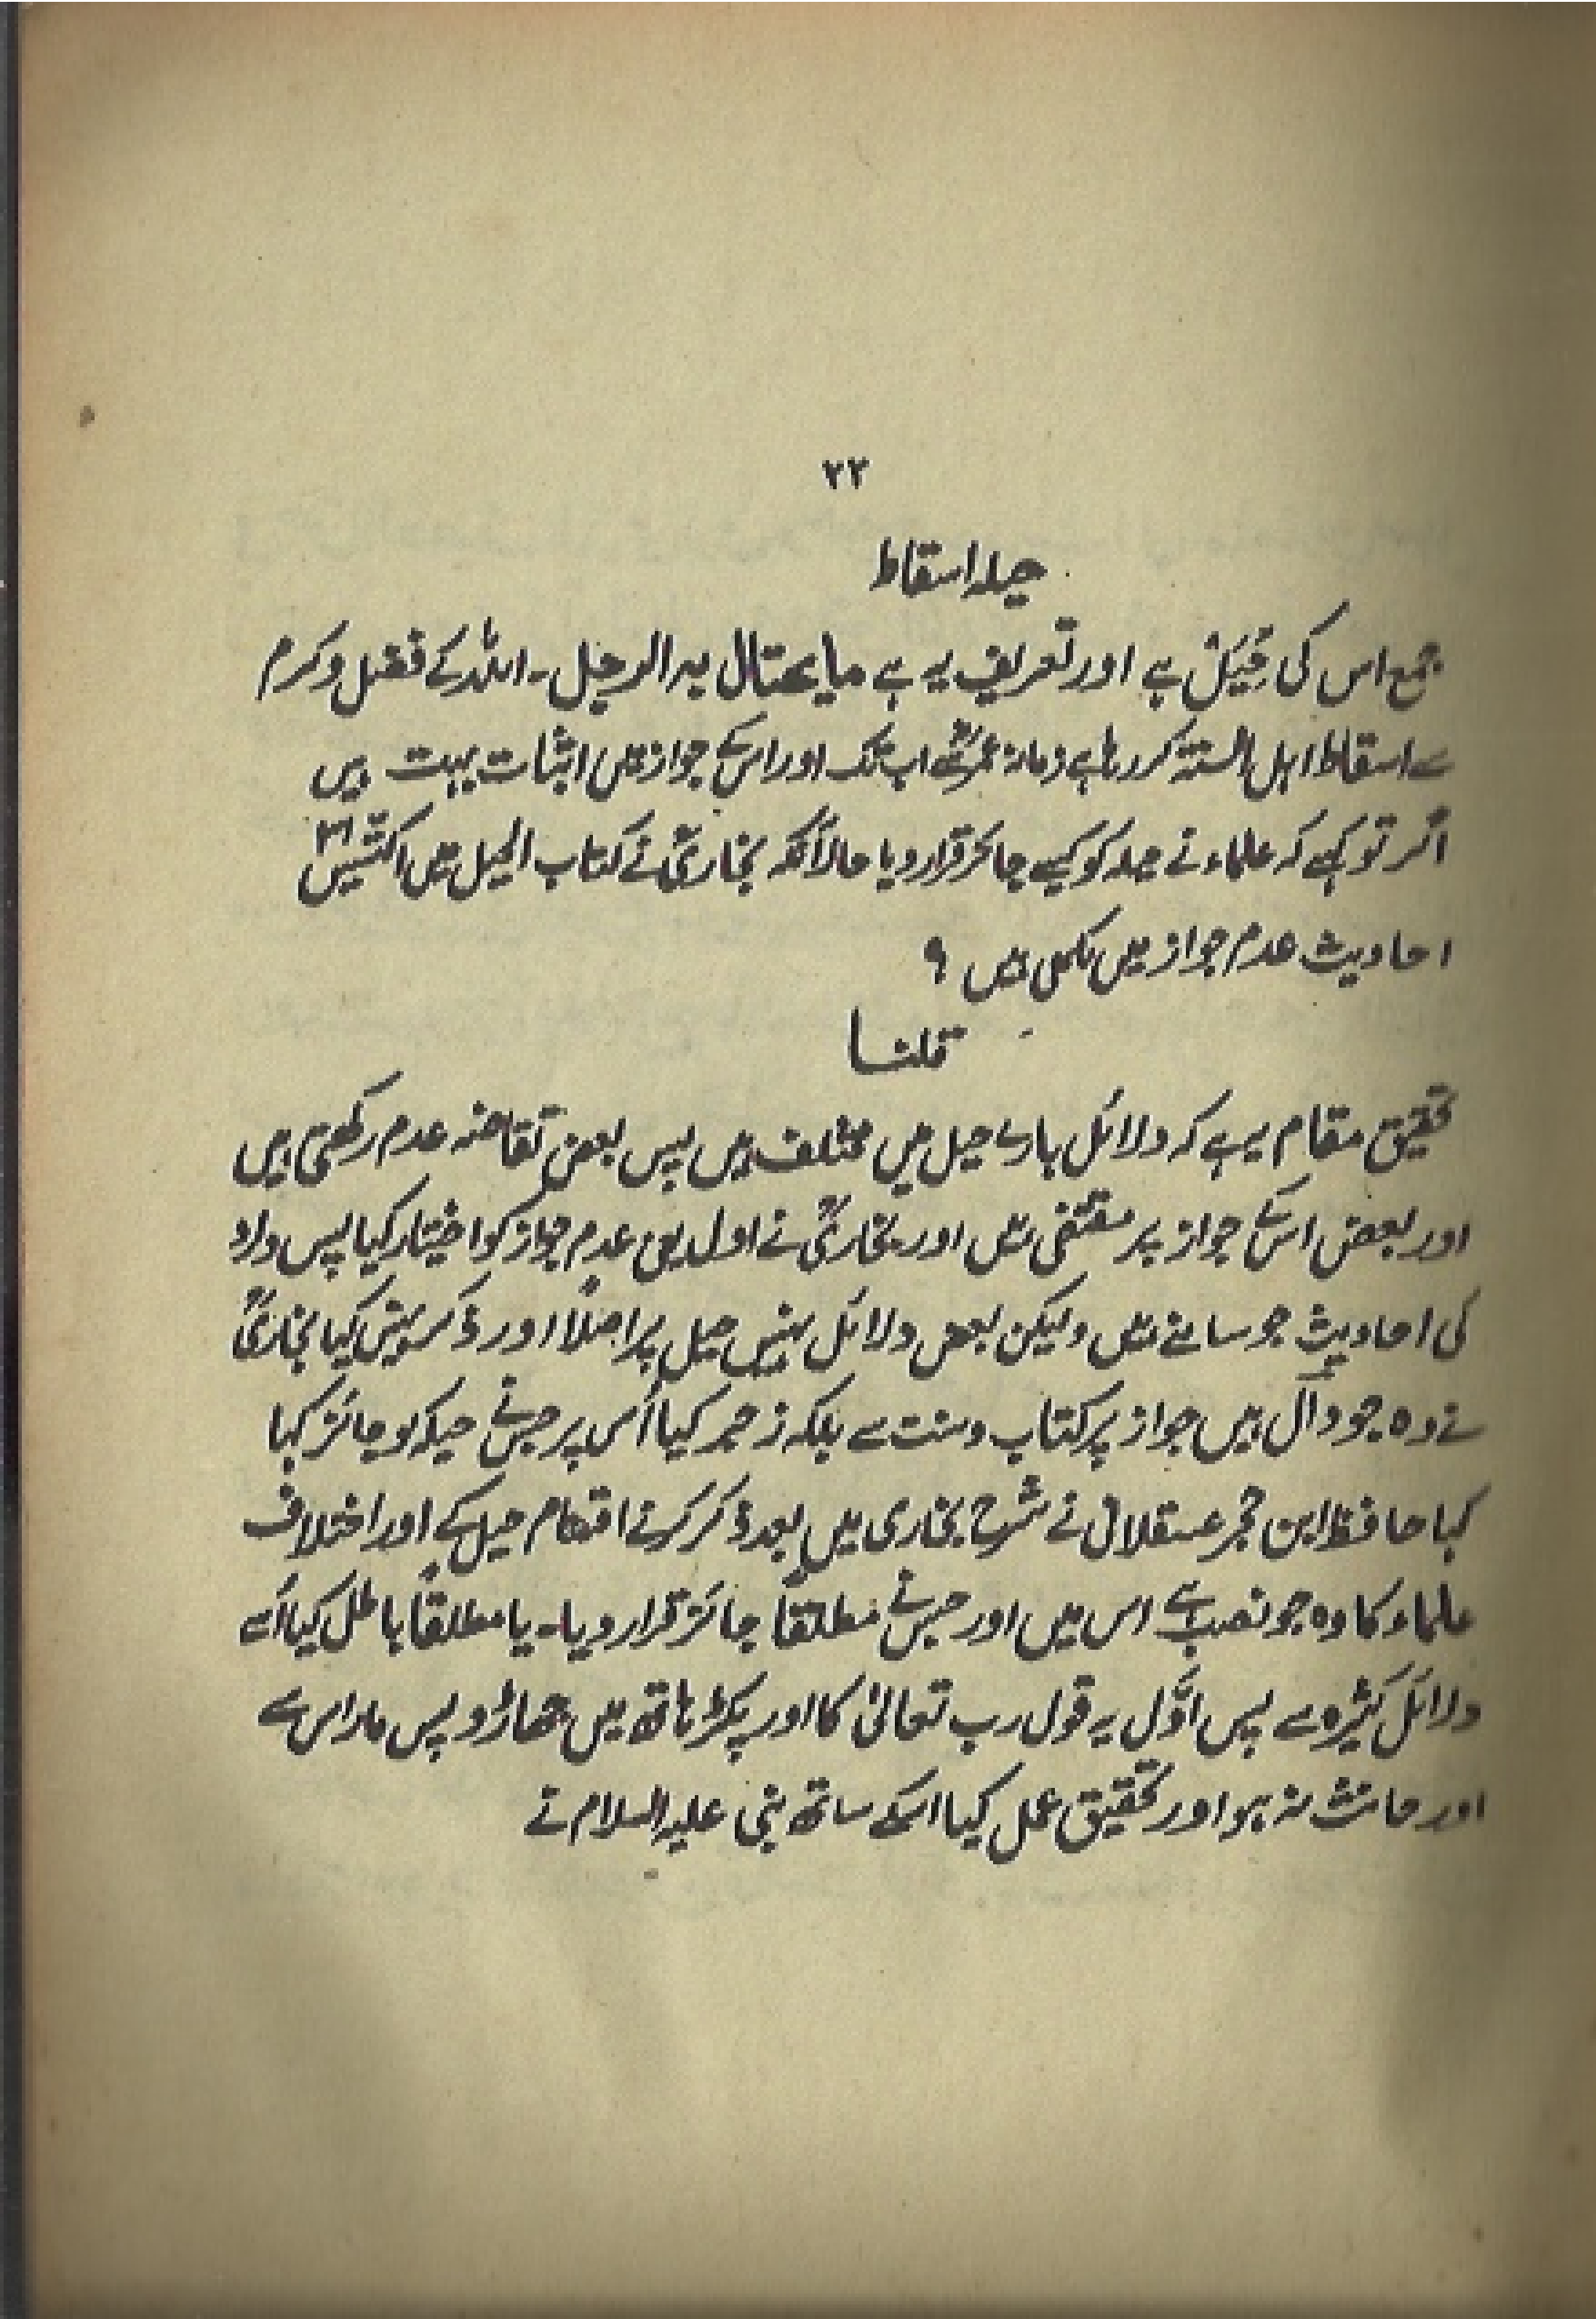 ۲۳
حیلہ اسقاط
جمع اس کی حِیَلْ ہے اور تعریف یہ ہے ما یحتال بہ الرجل۔ اللہ کے فضل و کرم
سے اسقاط اہل السنۃ کر رہا ہے زمانہ عمرؓ سے اب تک اور اس کے جواز میں اثبات بہت ہیں
اگر تو کہے کہ علماء نے حیلہ کو کیسے جائز قرار دیا حالانکہ بخاریؒ نے کتاب الحیل میں اکتیس ۳۱
احادیث عدم جواز میں لکھی ہیں ؟
قلنا
تحقیق مقام یہ ہے کہ دلائل بارے حیل میں مختلف ہیں پس بعض تقاضہ عدم رکھتی ہیں
اور بعض اس کے جواز پر مقتضی ہیں اور بخاریؒ نے اول یعنی عدم جواز کو اختیار کیا پس وارد
کی احادیث جو سامنے ہیں ولیکن بعض دلائل نہیں حیل پر اصلاً اور ذکر نہیں کیا بخاریؒ
نے وہ جو دال ہیں جواز پر کتاب و سنت سے بلکہ زجر کیا اُس پر جس نے حیلہ کو جائز کہا
کہا حافظ ابن حجر عسقلانی نے شرح بخاری میں بعد ذکر کرنے اقسام حیل کے اور اختلاف
علماء کا وہ جو نصب ہے اس میں اور جس نے مطلقاً جائز قرار دیا۔ یا مطلقاً باطل کیا اُسے
دلائل کثیرہ سے پس اوّل یہ قول رب تعالیٰ کا اور پکڑ ہاتھ میں جھاڑو پس مار اس سے
اور حانث نہ ہو اور تحقیق عمل کیا اسکے ساتھ نبی علیہ السلام نے